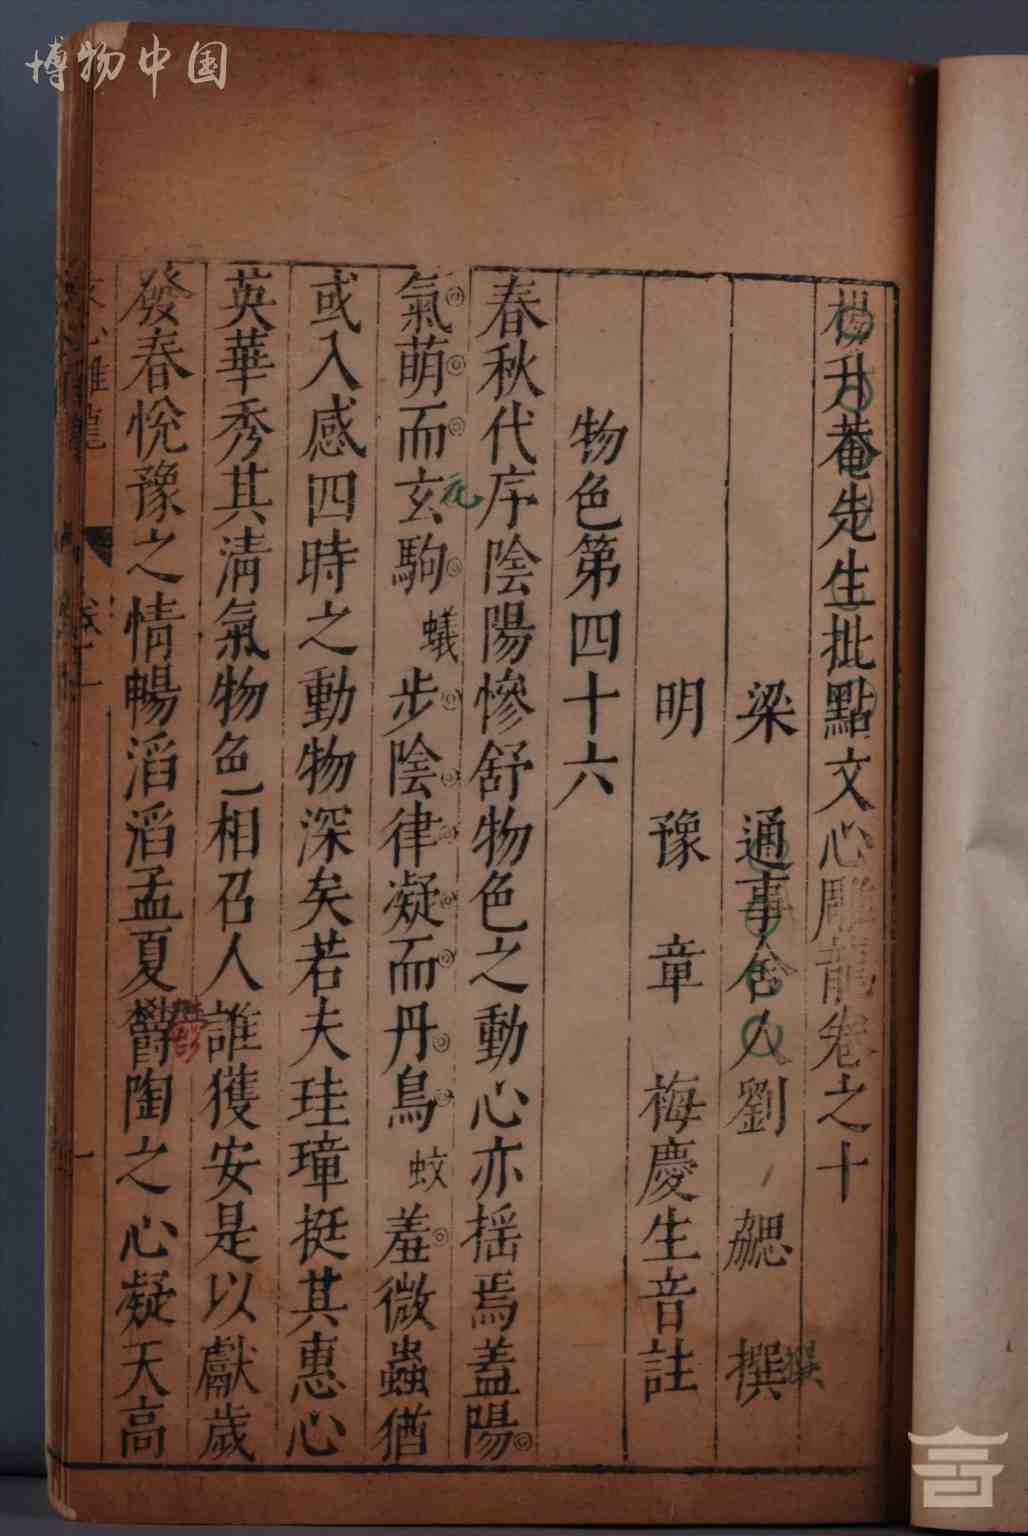 博物中国
楊升菴先生批點文心雕龍卷之十
梁 通事舍人劉 勰 撰
撰
明 豫 章 梅慶生音註
物色第四十六
春秋代序陰陽慘舒物色之動心亦揺焉蓋陽
氣萌而玄駒 蟻 步陰律凝而丹鳥 蚊 羞微蟲猶
元
或入感四時之動物深矣若夫珪璋挺其惠心
英華秀其清氣物色相召人誰獲安是以獻歲
發春悅豫之情暢滔滔孟夏欝陶之心凝天高
文心雕龍